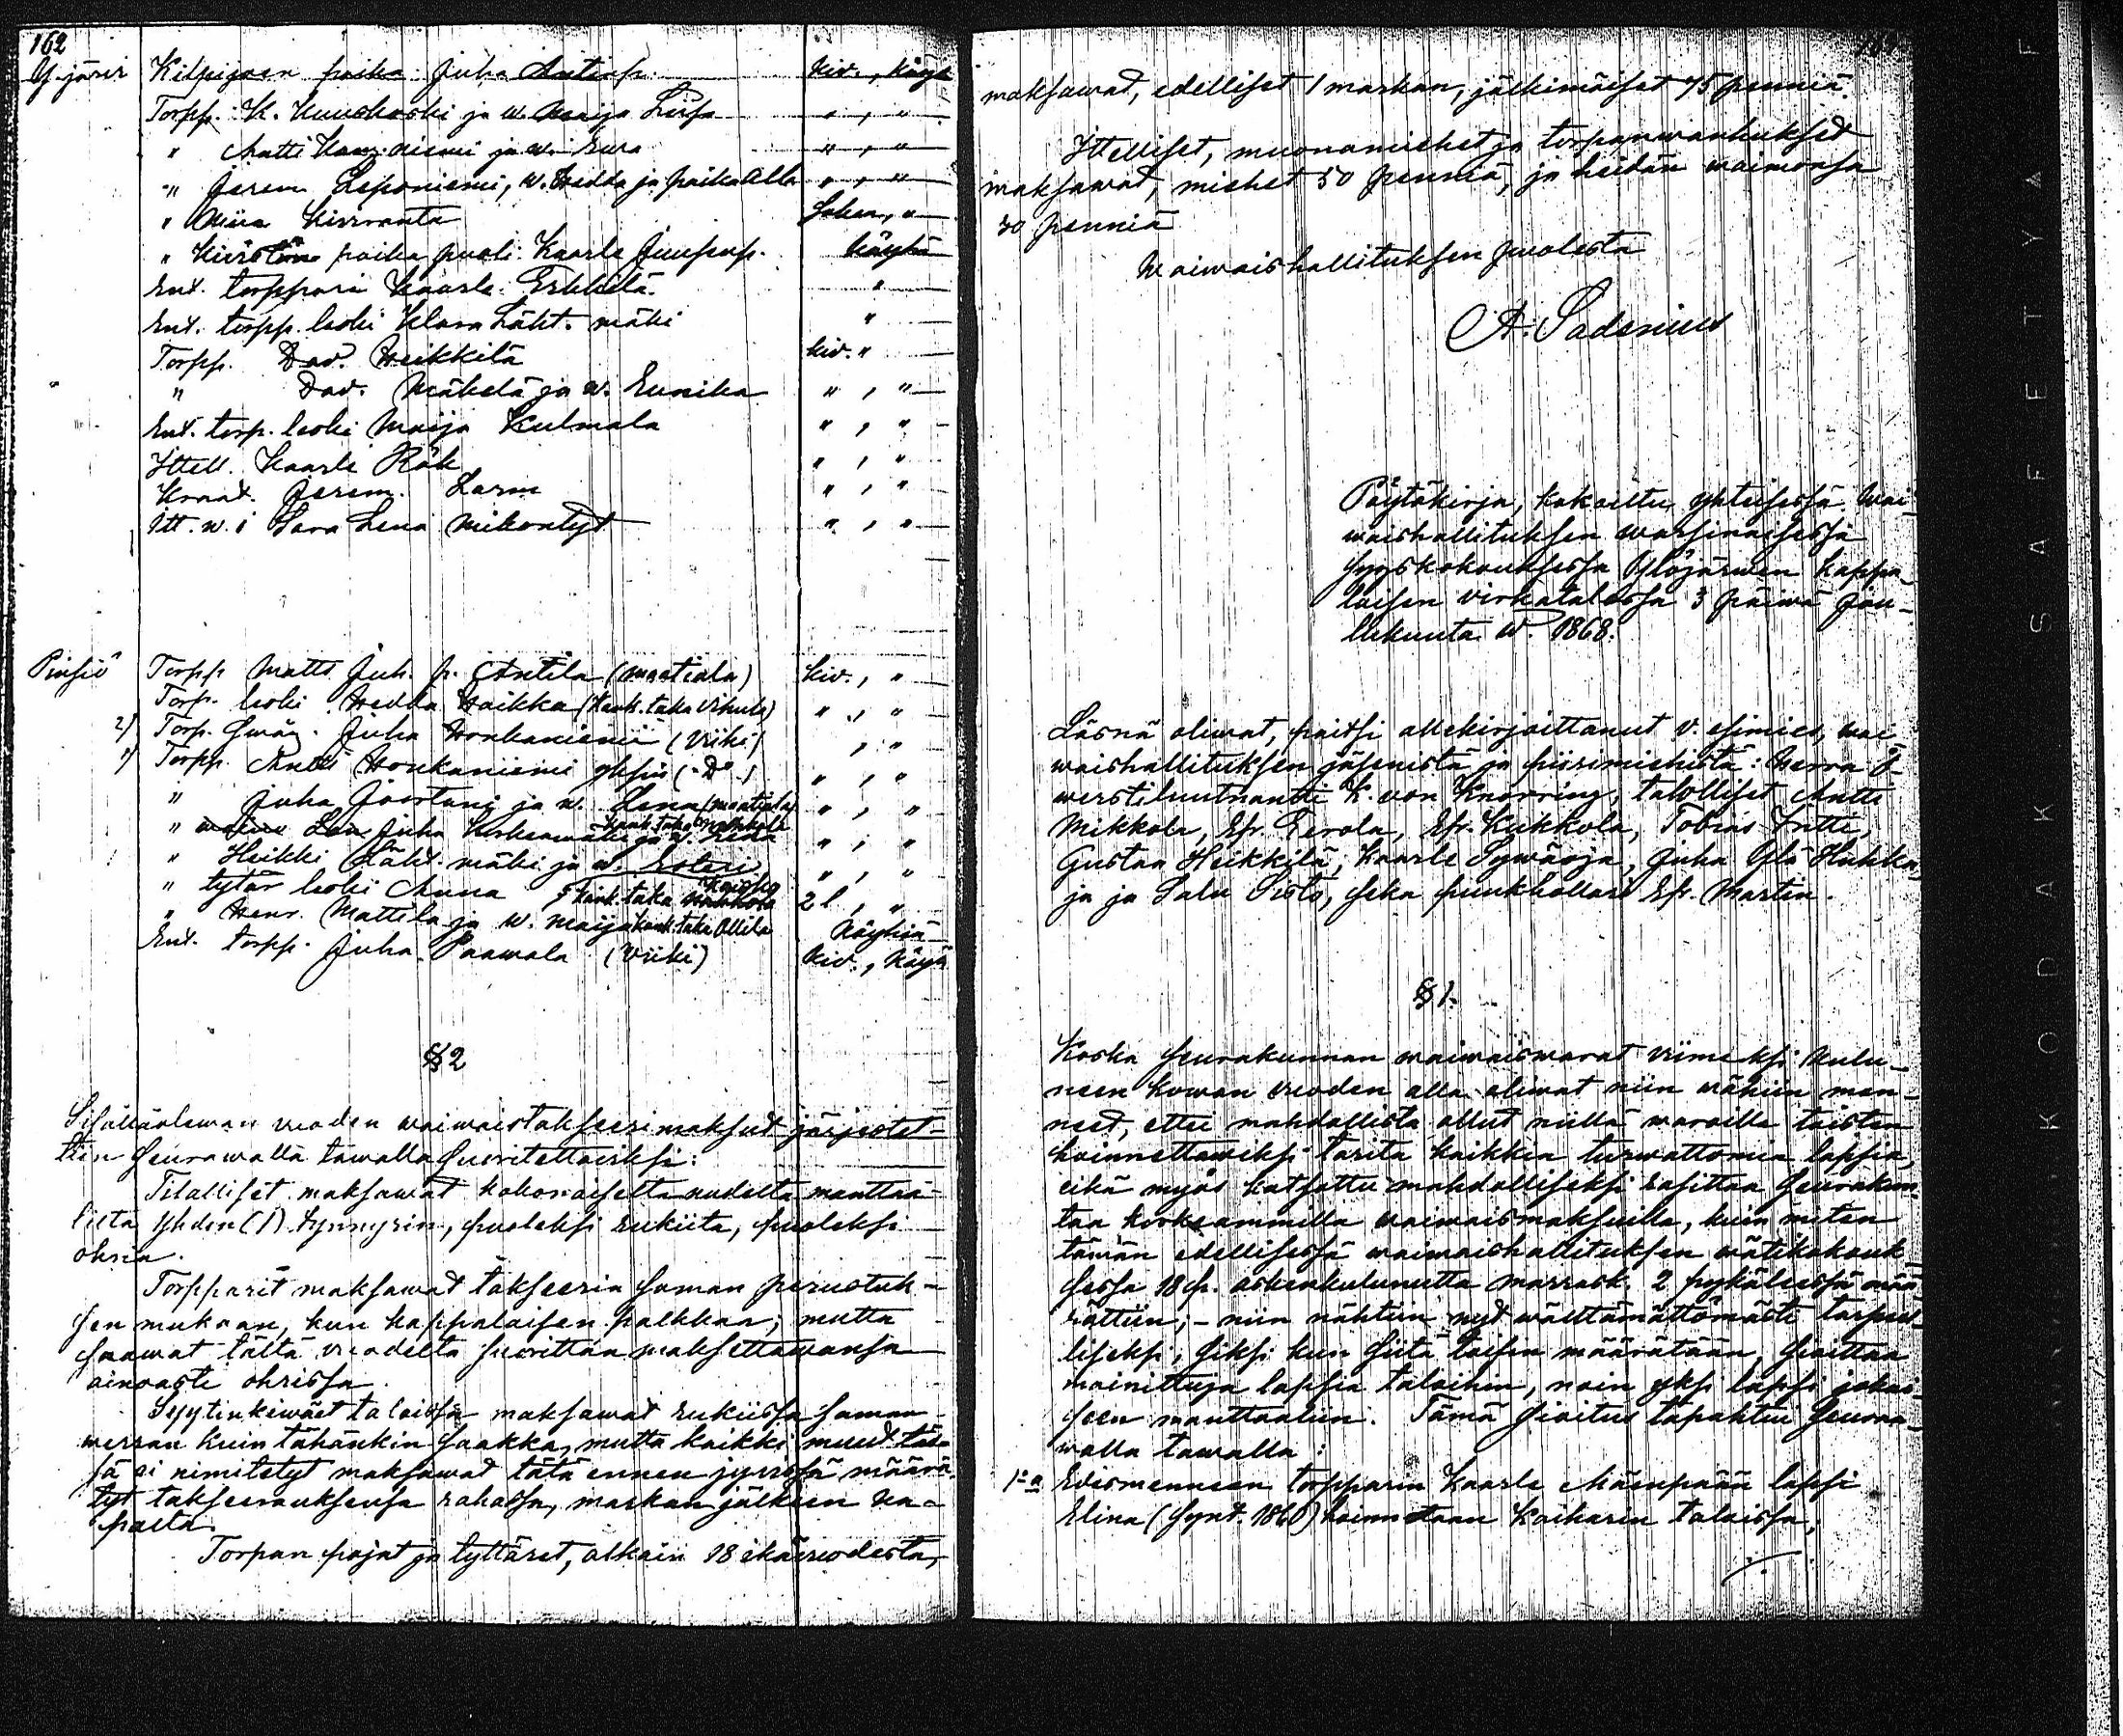 162
Y-järvi Kilpijoen poika Juha Antinp. kiv., käyh
Torpp. K. Kuuskoski ja w. Maija Liisa " , "
" Matti Kang.niemi ja w. Eva " , "
" Jerem Leponiemi, w. Hedda ja poika Alb " , "
" Miina Kiviranta Sokea, "
" poika puoli Kaarle Juusenp. käyhä
Ent. torppari Kaarle Erkkilä "
Ent. torpp. leski Klara Läht. mäki "
Torpp. Dav. Heikkilä kiv. "
" Dav. Mäkelä ja w. Eunika " , "
Ent. torp. leski Maija Kulmala " , "
Ittell. Kaarle Rök " , "
Jerem. Larm " , "
Itt. w. i Sara Lena Mikontyt " , "
Pinsiö Torpp Matts Juh. p. Antila (maatiala) kiv., "
Torp. leski Hedda Haikka (kauk.taka Vihula) " , "
2) Torp. Juha Honkaniemi (Viiki) , "
1) Torpp. Antti Honkaniemi yksin (D:o) " , "
" Juha Joostani ja w. Lena (maatiala) " , "
" Juha Koskenmäki ja w. " , "
" Heikki Läht. mäki ja w. " , "
" tytär leski Anna kauk.taka 2 l , "
" Henr. Mattila ja w. Maija kauk.taka Ollila käyhiä
Ent. torpp. Juha Paawala (Viiki) kiv., käyh
§ 2
Sisälläolewan vuoden waiwaistakseerimaksut järjestet-
tiin seurawalla tawalla suoritettawiksi:
Tilalliset maksawat kokonaiselta uudelta manttaa-
lilta yhden (1) tynnyrin, puoleksi rukiita, puoleksi
ohria.
Torpparit maksawat takseeria saman perustuk-
sen mukaan, kun kappalaisen palkkaa; mutta
saawat tältä vuodelta suorittaa maksettawansa
ainoasti ohrissa.
Syytinkiwäet taloissa maksawat rukiissa saman
werran kuin tähänkin saakka, mutta kaikki muut täs-
sä ei nimitetyt maksawat tätä ennen jywissä määrä-
tyt takseerauksensa rahassa, markan jälkeen ka-
palta.
Torpan pojat ja tyttäret, alkain 18 ikävuodesta,
maksawat, edelliset 1 markan, jälkimäiset 75 penniä.
Ittelliset, muonamiehet ja torpanwanhukset
maksawat, miehet 50 penniä, ja heidän waimonsa
30 penniä
Waiwaishallituksen puolesta
A. Sadenius
Pöytäkirja, kokoiltu yhteisessä Wai-
waishallituksen warsinaisessa
syyskokouksessa Ylöjärwen kappa-
laisen virkatalossa 3 päivä Jou-
lukuuta w. 1868.
Läsnä oliwat, paitsi allekirjoittanut v. esimies, wai-
waishallituksen jäsenistä ja piirimiehistä: Herra Ö-
werstiluutnantti K. von Knorring, talolliset Antti
Mikkola, Efr. Eerola, Efr. Kukkola, Tobias Intti,
Gustaa Heikkilä, Kaarle Sywäoja, Juha Ylä Huhka
ja ja Salu Sisto, seka puukhollari Efr. Martin.
§ 1.
Koska seurakunnan waiwaiswarat viimeksi kulu-
neen kowan vuoden alla oliwat niin wähiin men-
neet, ettei mahdollista ollut niillä waroilla toisten
hoinnettawiksi tarita kaikkia turwattomia lapsia,
eikä myös katsottu mahdolliseksi rasittaa seurakun-
taa korkeammilla waiwaismaksuilla, kuin miten
tämän edellisessä waiwaishallituksen wälikokouk
sessa 18 p. äskenkulunutta marrask. 2 pykälässä mää
rättiin; – niin nähtiin nyt wälttämättömästi tarpeel-
liseksi, siksi kun siitä toisin määrätään, sioittaa
mainittuja lapsia taloihin, noin yksi lapsi jokai-
seen manttaaliin. Tämä sioitus tapahtui seuraa-
walla tawalla:
1:o Edesmenneen torpparin Kaarle Mäenpään lapsi
Elina (synt. 1860) hoinnetaan Kaikarin taloissa;
./.
KODAK SAFETY AF